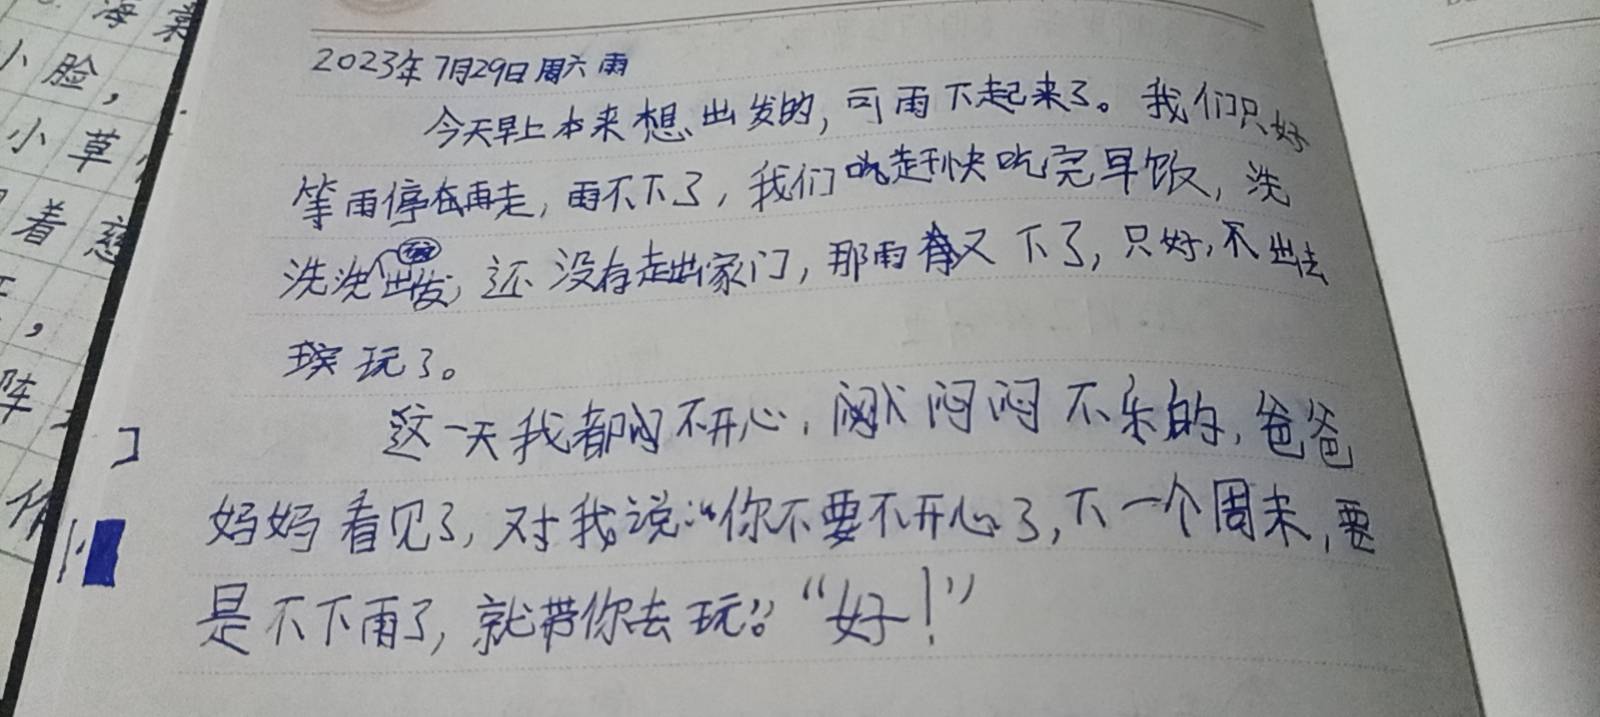 2023年7月29日周六 雨
今天早上本来想出发的，可雨下起来了。我们只好
等雨停在再走，雨不下了，我们吃赶快吃完早饭，洗
洗洗出发，还没有走出家门，那雨有又下了，只好，不出去
玩了。
这一天我都闷不开心，闷闷不乐的，爸爸
妈妈看见了，对我说：“你不要不开心了，下一个周末，要
是不下雨了，就带你去玩。”“好！”
海
小脸，
小草
着慈
，
阵
作